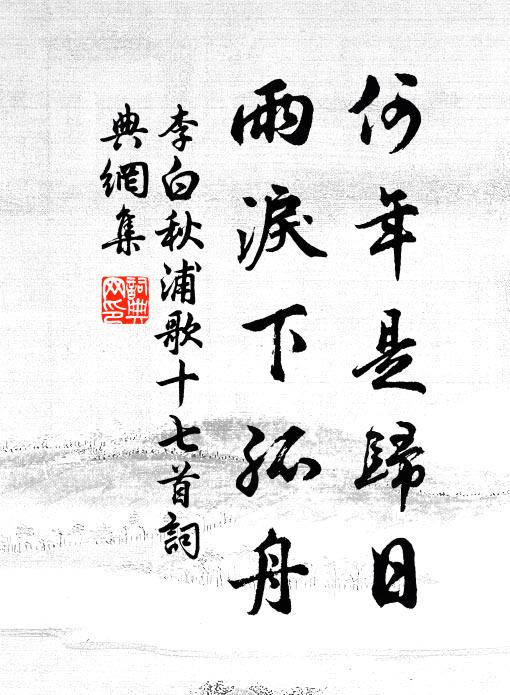 何年是歸日
雨淚下孤舟
李白秋浦歌十七首詞
典網集
詞典
网印